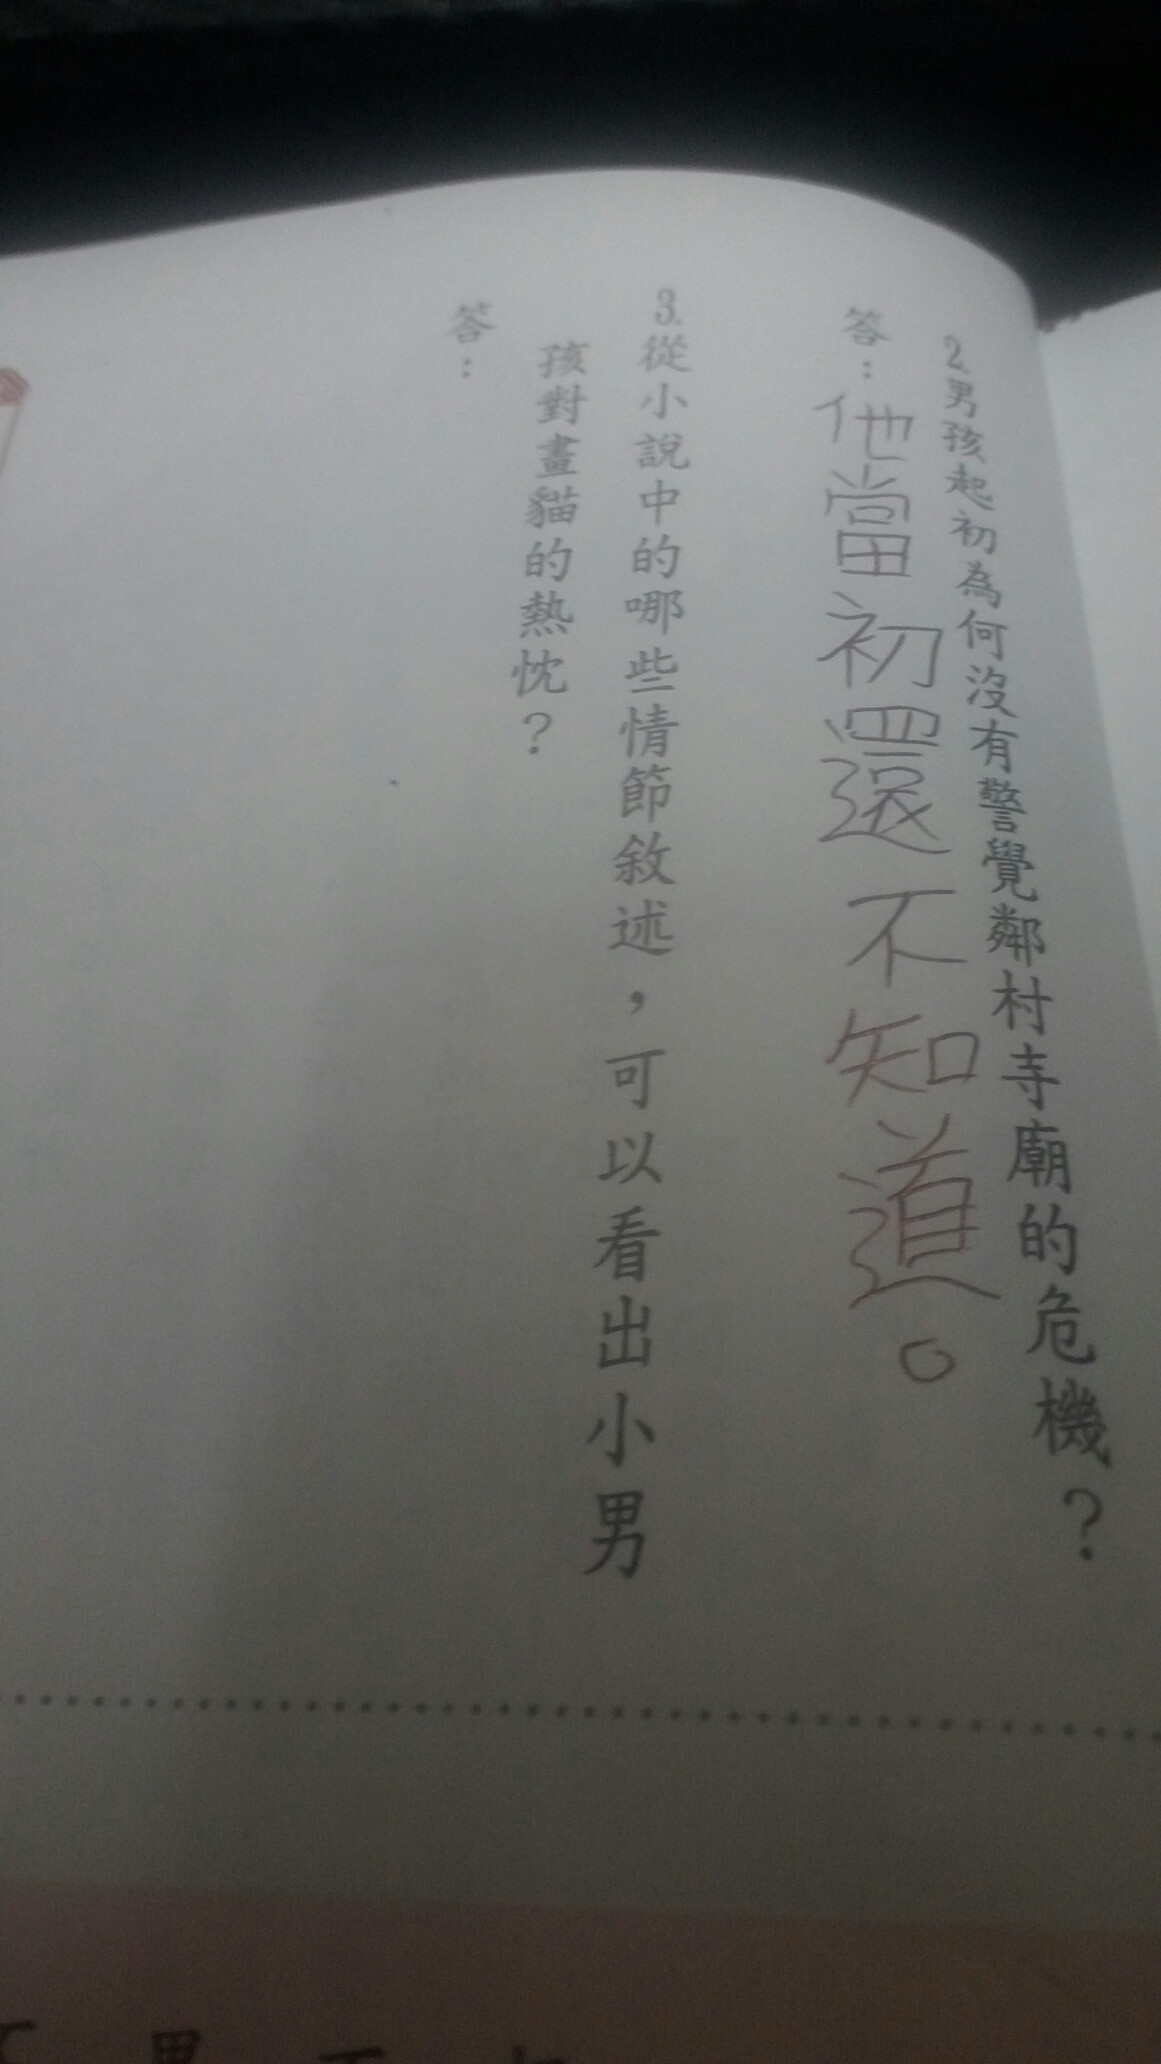 2.男孩起初為何沒有警覺鄰村寺廟的危機？
答：他當初還不知道。
3.從小說中的哪些情節敘述，可以看出小男
孩對畫貓的熱忱？
答：